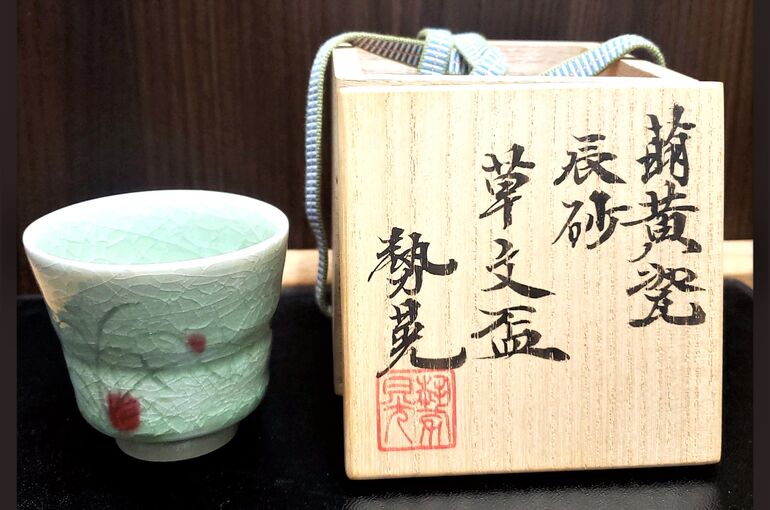 萠黄瓷
辰砂
草文盃
勢晃
勢晃